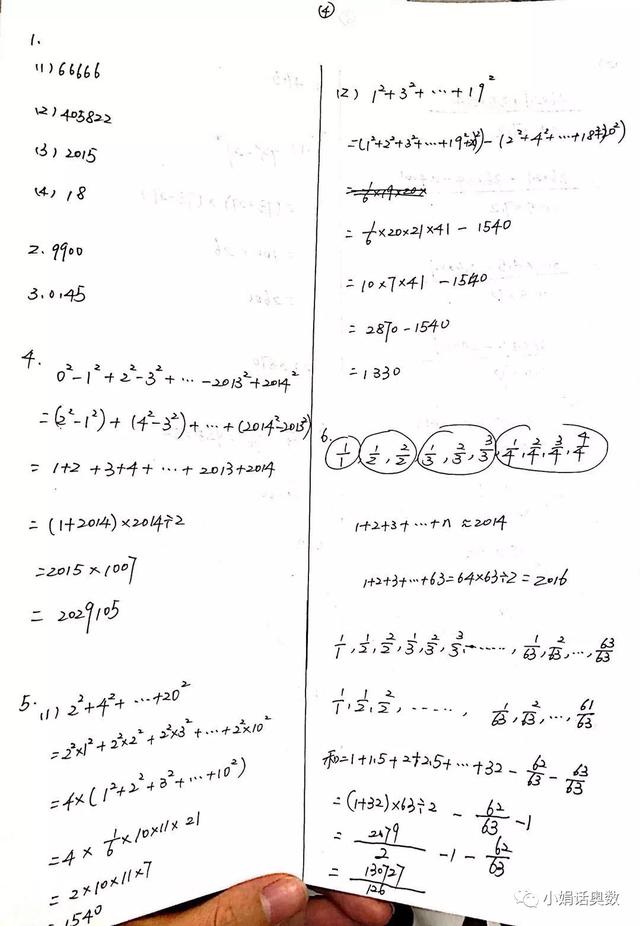 ④
1.
(1) 66666
(2) 403822
(3) 2015
(4) 18
2. 9900
3. 0.145
4. 0²-1²+2²-3²+…-2013²+2014²
=(2²-1²)+(4²-3²)+…+(2014²-2013²)
=1+2+3+4+…+2013+2014
=(1+2014)×2014÷2
=2015×1007
=2029105
5. (1) 2²+4²+…+20²
=2²×1²+2²×2²+2²×3²+…+2²×10²
=4×(1²+2²+3²+…+10²)
=4×1/6×10×11×21
=2×10×11×7
=1540
(2) 1²+3²+…+19²
=(1²+2²+3²+…+19²+20²)-(2²+4²+…+18²+20²)
=1/6×19×20×
=1/6×20×21×41-1540
=10×7×41-1540
=2870-1540
=1330
6. 1/1, 1/2, 2/2, 1/3, 2/3, 3/3, 1/4, 2/4, 3/4, 4/4
1+2+3+…+n≈2014
1+2+3+…+63=64×63÷2=2016
1/1, 1/2, 2/2, 1/3, 2/3, 3/3, ……, 1/63, 2/63, …, 63/63
1/1, 1/2, 2/2, ……, 1/63, 2/63, …, 61/63
和=1+1.5+2+2.5+…+32-62/63-63/63
=(1+32)×63÷2-62/63-1
=2079/2-1-62/63
=130727/126
小娟话奥数